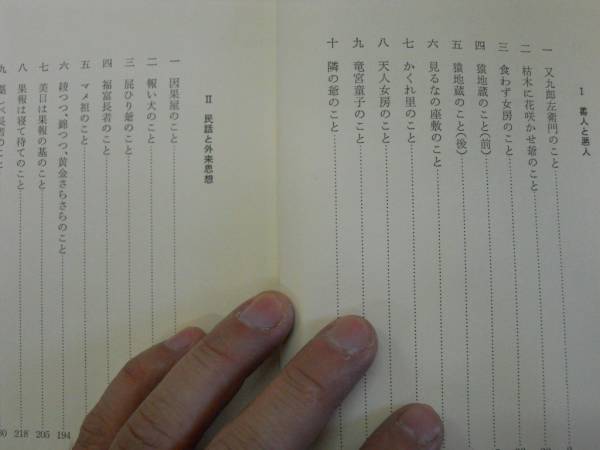 I 善人と悪人
一 又九郎左衛門のこと
二 枯木に花咲かせ爺のこと
三 食わず女房のこと
四 猿地蔵のこと(前)
五 猿地蔵のこと(後)
六 見るなの座敷のこと
七 かくれ里のこと
八 天人女房のこと
九 竜宮童子のこと
十 隣の爺のこと
II 民話と外来思想
一 因果屋のこと
二 報い犬のこと
三 屁ひり爺のこと
四 福富長者のこと
五 マメ祖のこと
六 綾つつ、錦つつ、黄金さらさらのこと 194
七 美目は果報の基のこと 205
八 果報は寝て待てのこと 218